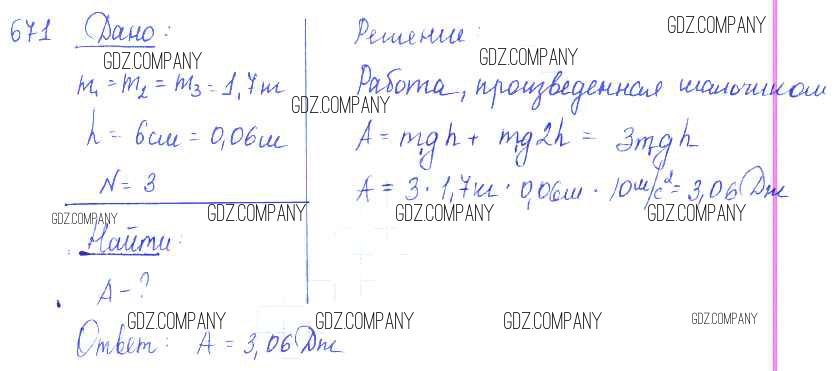 671 Дано:
m₁ = m₂ = m₃ = 1,7 кг
h = 6см = 0,06м
N = 3
Найти:
A - ?
Решение:
Работа, произведенная
A = m₁gh + m₁g2h = 3m₁gh
A = 3 · 1,7кг · 0,06м · 10 м/с² = 3,06 Дж
Ответ: A = 3,06 Дж
GDZ.COMPANY
GDZ.COMPANY
GDZ.COMPANY
GDZ.COMPANY
GDZ.COMPANY
GDZ.COMPANY
GDZ.COMPANY
GDZ.COMPANY
GDZ.COMPANY
GDZ.COMPANY
GDZ.COMPANY
GDZ.COMPANY